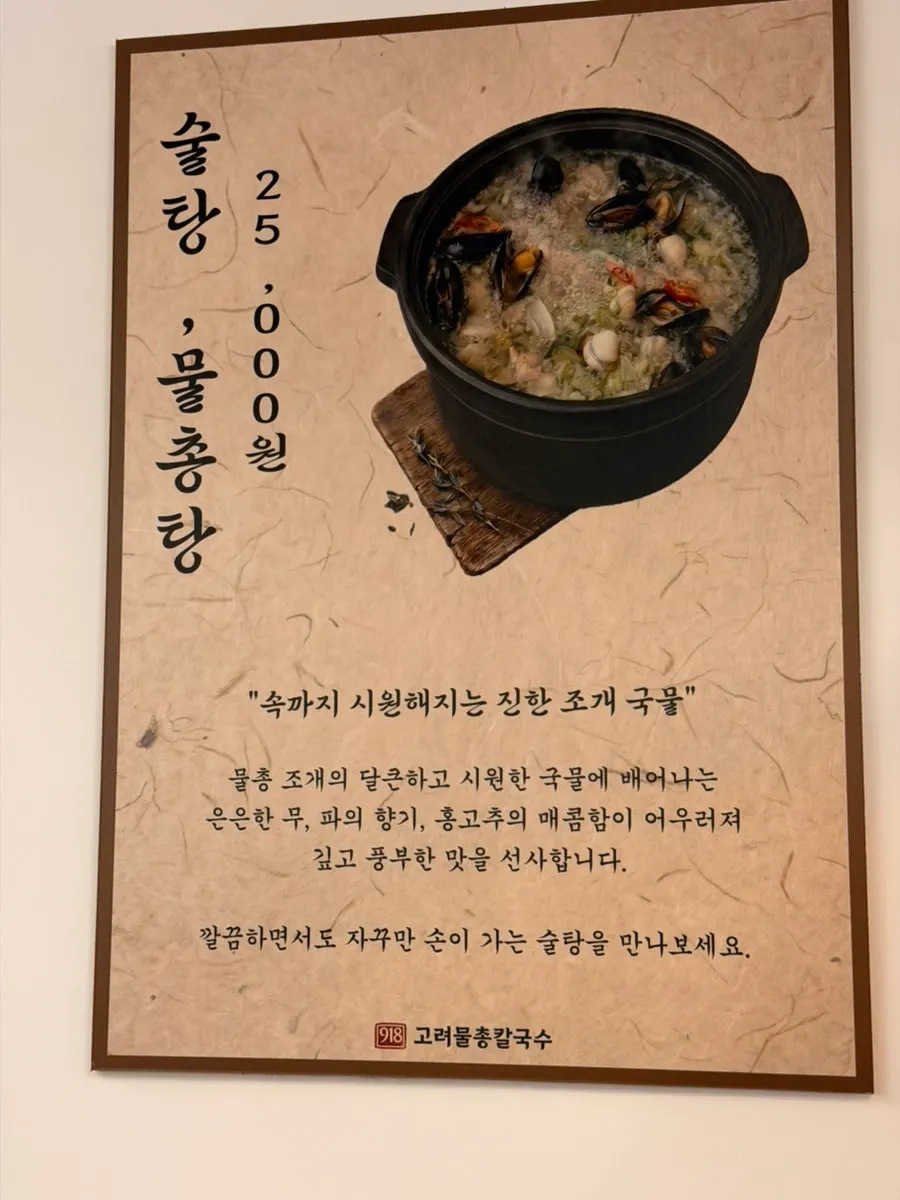 술탕 ,물총탕
25,000원
"속까지 시원해지는 진한 조개 국물"
물총 조개의 달큰하고 시원한 국물에 배어나는
은은한 무, 파의 향기, 홍고추의 매콤함이 어우러져
깊고 풍부한 맛을 선사합니다.
깔끔하면서도 자꾸만 손이 가는 술탕을 만나보세요.
918 고려물총칼국수